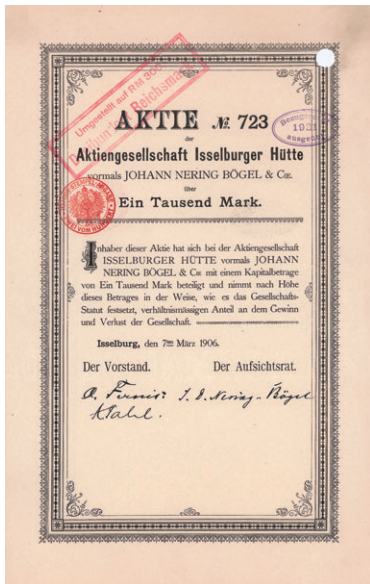 Umgestellt auf RM 300
Reichsmark
AKTIE № 723
der
Aktiengesellschaft Isselburger Hütte
vormals JOHANN NERING BÖGEL & Cie.
über
Ein Tausend Mark.
Inhaber dieser Aktie hat sich bei der Aktiengesellschaft
ISSELBURGER HÜTTE vormals JOHANN
NERING BÖGEL & Cie mit einem Kapitalbetrage
von Ein Tausend Mark beteiligt und nimmt nach Höhe
dieses Betrages in der Weise, wie es das Gesellschafts-
Statut festsetzt, verhältnismässigen Anteil an dem Gewinn
und Verlust der Gesellschaft.
Isselburg, den 7ten März 1906.
Der Vorstand. Der Aufsichtsrat.
Nering-Bögel